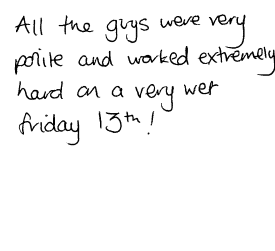 All the guys were very
polite and worked extremely
hard on a very wet
friday 13th!